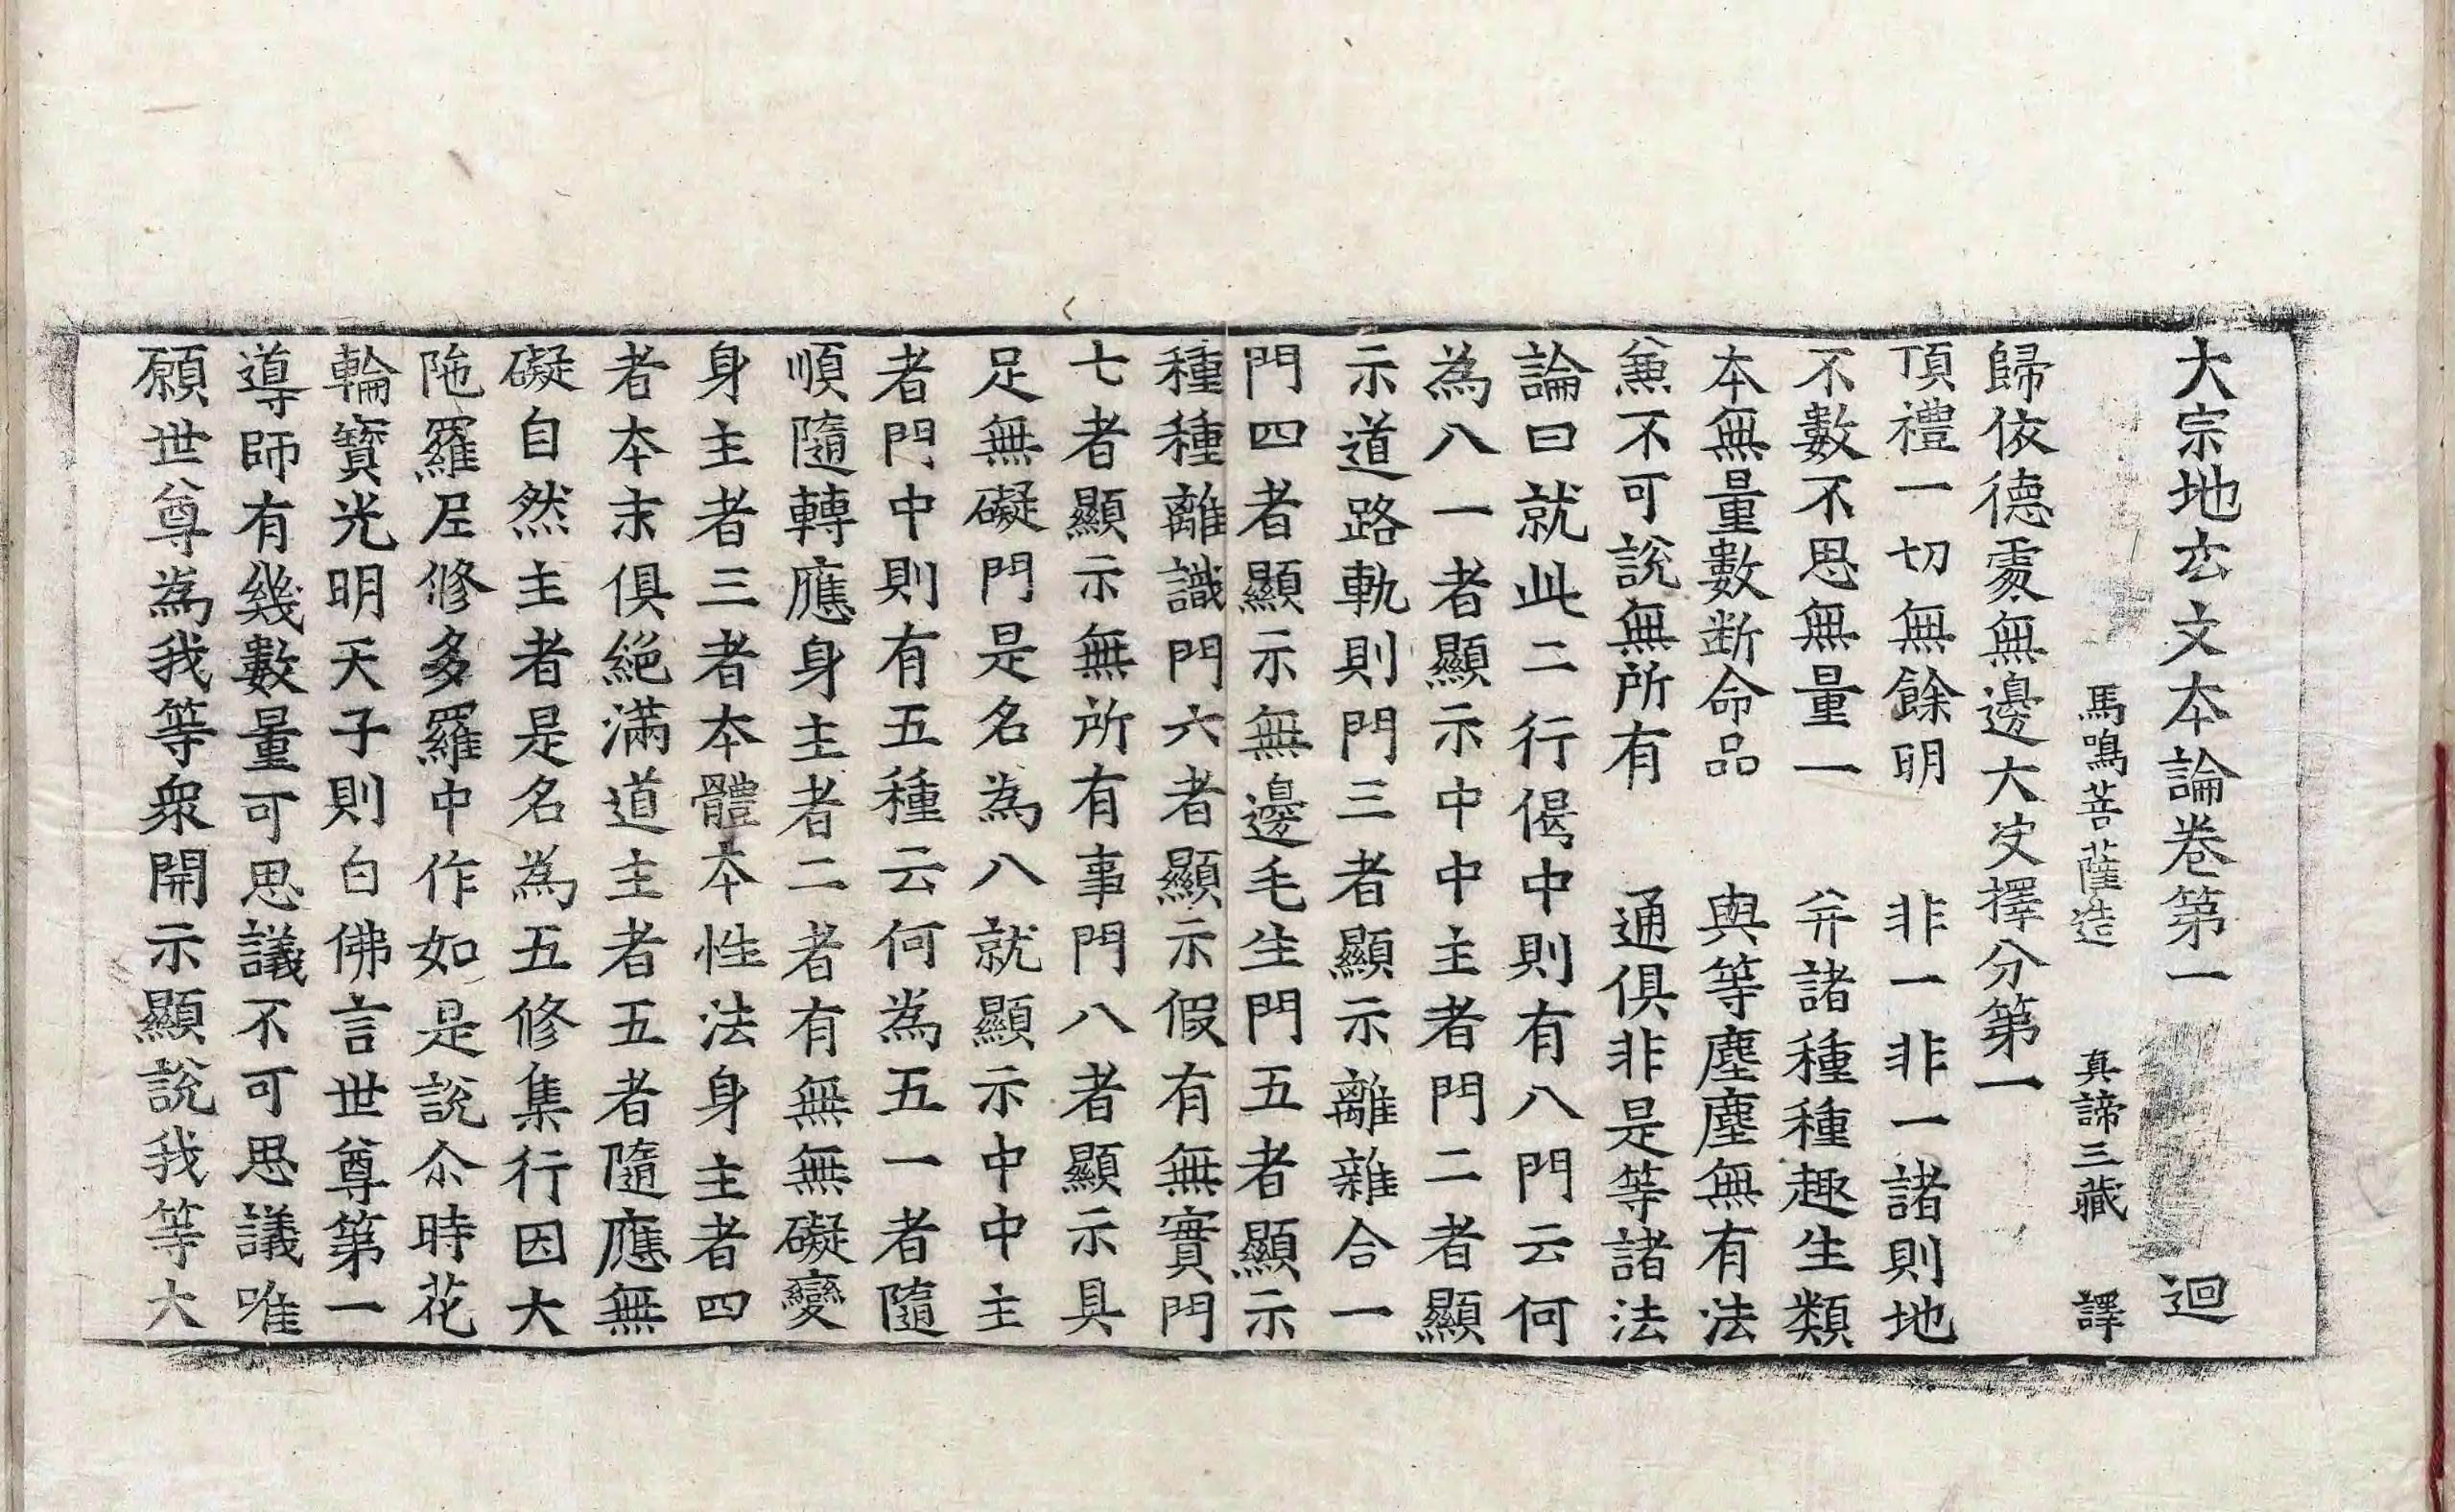 大宗地玄文本論卷第一 迴
馬鳴菩薩造 真諦三藏 譯
歸依德處無邊大決擇分第一
頂禮一切無餘明 非一非一諸則地
不數不思無量一 并諸種種趣生類
本無量數断命品 與等塵塵無有法
兼不可說無所有 通俱非是等諸法
論曰就此二行偈中則有八門云何
為八一者顯示中中主者門二者顯
示道路軌則門三者顯示離雜合一
門四者顯示無邊毛生門五者顯示
種種離識門六者顯示假有無實門
七者顯示無所有事門八者顯示具
足無礙門是名為八就顯示中中主
者門中則有五種云何為五一者隨
順隨轉應身主者二者有無無礙變
身主者三者本體本性法身主者四
者本末俱絕滿道主者五者隨應無
礙自然主者是名為五修集行因大
陁羅尼修多羅中作如是說尒時花
輪寶光明天子則白佛言世尊第一
導師有幾數量可思議不可思議唯
願世尊為我等衆開示顯說我等大